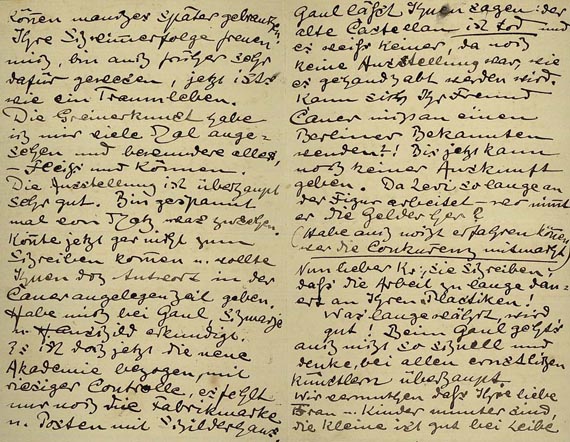 können manches später gebrauchen.
Ihre Steinerfolge freuen
mich, bin auch früher sehr
dafür gewesen, jetzt ists
wie ein Traumleben.
Die Greinerkunst habe
ich mir viele Mal ange=
sehen und bewundere alles,
– Fleiss und Können.
Die Ausstellung ist überhaupt
sehr gut. Bin gespannt
mal von Matz was zu sehen.
Konnte jetzt gar nicht zum
Schreiben kommen u. wollte
Ihnen doch Antwort in der
Cauerangelegenzeit geben.
Habe mich bei Gaul
u. Hauschild erkundigt.
Es ist doch jetzt die neue
Akademie bezogen, mit
riesiger Controlle, es fehlt
nur noch die Fabrikmarke
u. Posten mit Schilderhaus
Gaul lässt Ihnen sagen: der
alte Castellan ist tod und
es weiss keiner, da noch
keine Ausstellung war, wie
es gehandhabt werden wird.
Kann sich Ihr Freund
Cauer nicht an einen
Berliner Bekannten
wenden?! Bis jetzt kann
noch keiner Auskunft
geben. Da Levi so lange an
der Figur arbeitet – wo nimmt
er die Gelder her?
(Habe auch nicht erfahren können
wer die Concurenz mitmacht)
Nun lieber Kr. Sie schreiben:
dass die Arbeit zu lange dau=
ert an Ihren Plastiken!
Was lange währt, wird
gut! Beim Gaul gehts
auch nicht so schnell und
denke, bei allen ernstlichen
Künstlern überhaupt.
Wir vermuthen dass Ihre liebe
Frau u. Kinder munter sind,
die Kleine ist gut bei Leibe